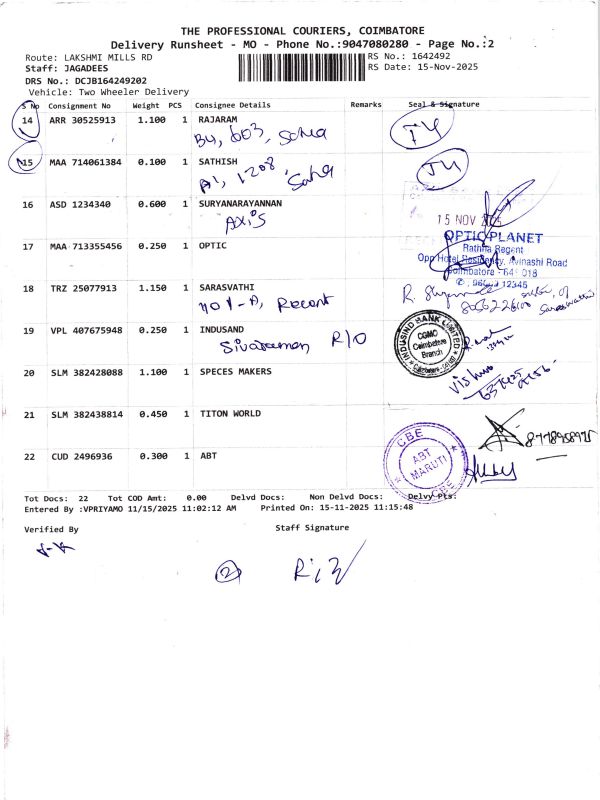 THE PROFESSIONAL COURIERS, COIMBATORE
Delivery Runsheet - MO - Phone No.:9047080280 - Page No.:2
Route: LAKSHMI MILLS RD
RS No.: 1642492
Staff: JAGADEES
RS Date: 15-Nov-2025
DRS No.: DCJB164249202
Vehicle: Two Wheeler Delivery
S No Consignment No Weight PCS Consignee Details Remarks Seal & Signature
14 ARR 30525913 1.100 1 RAJARAM
B4, 603, Saha
15 MAA 714061384 0.100 1 SATHISH
A1, 1208, Saha
16 ASD 1234340 0.600 1 SURYANARAYANNAN
AXIS
15 NOV
17 MAA 713355456 0.250 1 OPTIC
OPTIC PLANET
Rathna Regent
Opp Hotel Residency, Avinashi Road
Coimbatore - 641 018
12345
18 TRZ 25077913 1.150 1 SARASVATHI
no 1-A, Recont
19 VPL 407675948 0.250 1 INDUSAND
Sivaraman R/O
INDUSIND BANK LIMITED
CGMO
Coimbatore
Branch
20 SLM 382428088 1.100 1 SPECES MAKERS
21 SLM 382438814 0.450 1 TITON WORLD
22 CUD 2496936 0.300 1 ABT
CBE
ABT
MARUTI
CBE
Tot Docs: 22 Tot COD Amt: 0.00 Delvd Docs: Non Delvd Docs: Delvy Pts:
Entered By :VPRIYAMO 11/15/2025 11:02:12 AM Printed On: 15-11-2025 11:15:48
Verified By Staff Signature
2